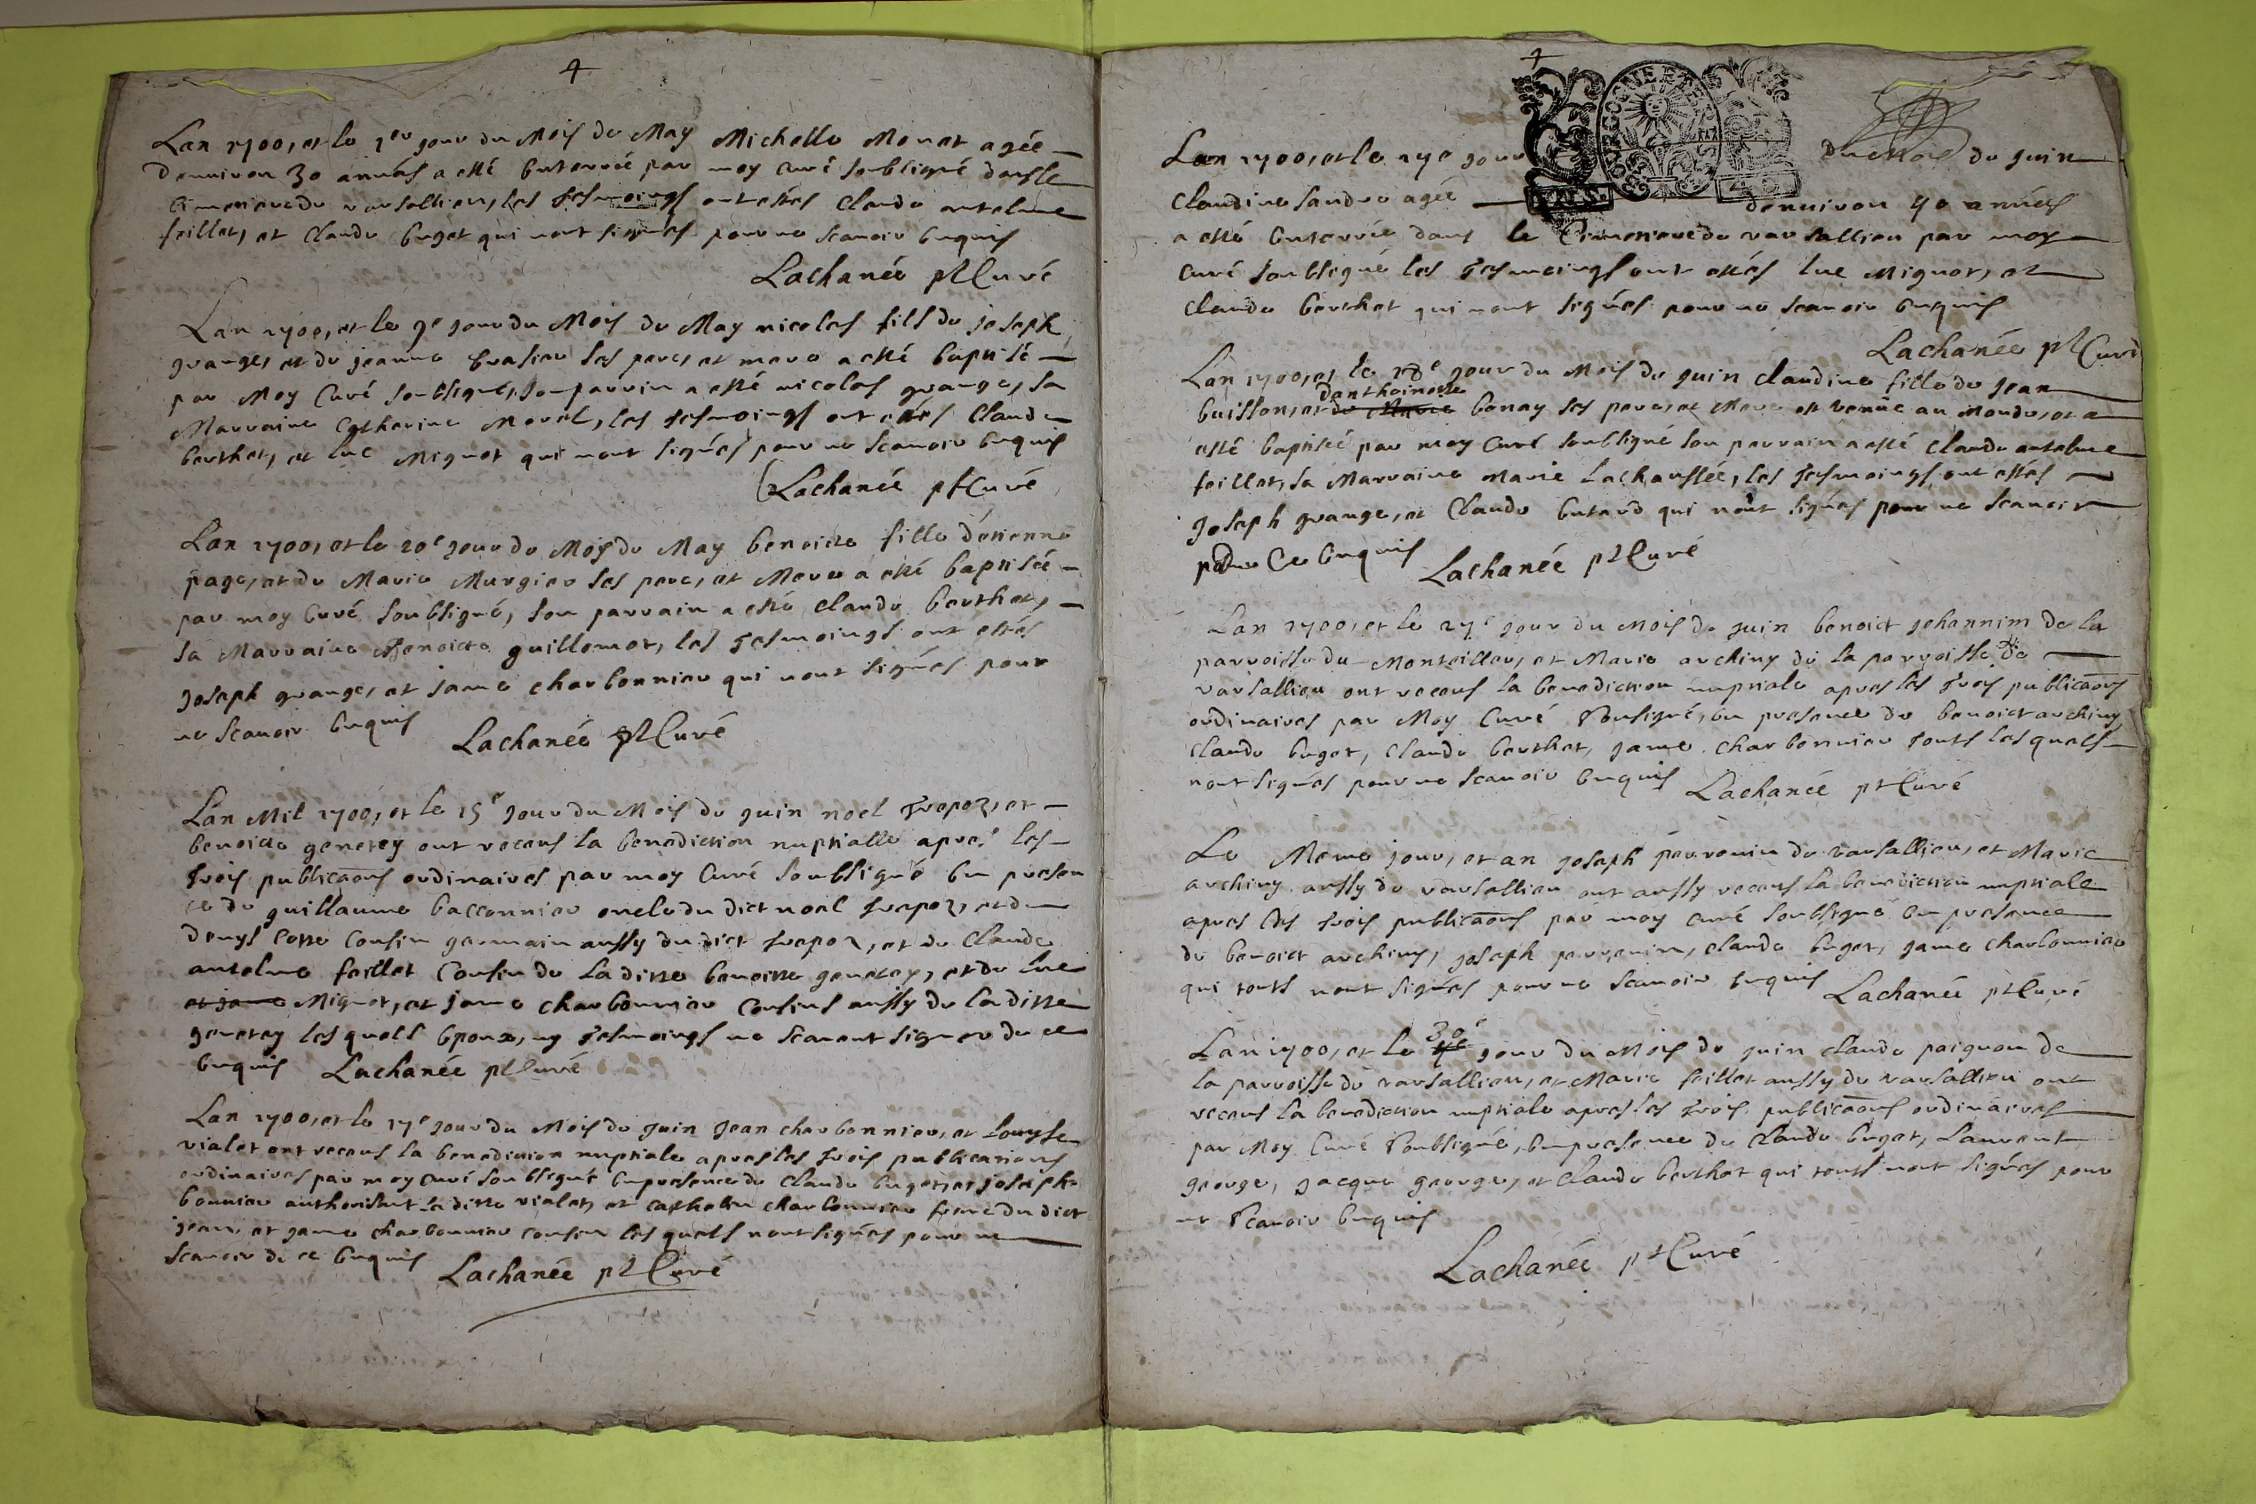 4
Lan 1700, et le 1er jour du Mois de May Michelle Monet agée
denuiron 30 années a esté Enterrée par moy curé soubsigné dans le
Cimetiere de varsallieu, les tesmoings ont estés Claude antelme
feillet, et Claude buget qui nont signés pour ne scauoir Enquis
Lachanée ptCuré
Lan 1700, et le 9e jour du Mois de May nicolas fils de joseph
grange, et de jeanne brasier ses pere, et mere a esté baptisé
par Moy Curé soubsigné, son parrin a esté nicolas grange, sa
Marraine Catherine Morel, les tesmoings ont estés Claude
berthet, et luc Mignot qui nont signés pour ne Scauoir Enquis
Lachanée ptCuré
Lan 1700, et le 20e jour de Mois de May benoicte fille d'etienne
page, et de Marie Murgier ses pere, et Mere a esté baptisée
par moy Curé Soubsigné, son parrain a esté Claude berthet,
sa Marraine Benoicte guillemot, les tesmoings ont estés
joseph grange, et jame charbonnier qui nont signés pour
ne Scauoir Enquis Lachanée ptCuré
Lan Mil 1700, et le 15e jour du Mois de juin noel trepoz, et
benoicte generey ont receus la benediction nuptialle apres les
trois publicaons ordinaires par moy Curé Soubsigné En presen
ce de guillaume bacconnier oncle du dict noel trepoz, et de
denys Coste Cousin germain aussy du dict trepoz, et de Claude
antelme feillet Cousin de La ditte benoitte generey, et de luc
et jame Mignot, et jame charbonnier Cousins aussy de la ditte
generey lesquels Epoux, ny tesmoings ne Scauent signer de ce
Enquis Lachanée ptCuré
Lan 1700, et le 17e jour du Mois de juin jean charbonnier, et Louyse
vialet ont receus la benediction nuptiale apres les trois publications
ordinaires par moy curé soubsigné En presence de Claude buget, et joseph
bonnier authorisant la ditte vialet, et charbonnier frere du dict
jean, et jame charbonnier cousin les quels nont signés pour ne
scauoir de ce Enquis Lachanée ptCuré
4
Lan 1700, et le 17e jour du Mois de juin
Claudine Sandre agée denuiron 40 années
a esté Enterrée dans le Cimetiere de varsallieu par moy
curé soubsigné les tesmoings ont estés luc Mignot, et
Claude berthet qui nont signés pour ne scauoir Enquis
Lachanée ptCuré
Lan 1700, et le 18e jour du Mois de juin claudine fille de jean
danthoinette
buisson, et de Marie bonay ses pere, et Mere est venüe au Monde, et a
esté baptisée par moy Curé soubsigné son parrain a esté Claude antelme
feillet, sa Marraine Marie Lachaussée, les tesmoings ont estés
joseph grange, et Claude butard qui nont signés pour ne scauoir
de Ce Enquis Lachanée ptCuré
Lan 1700, et le 27e jour du Mois de juin benoict johannim de la
parroisse du Monteillier, et Marie archiny de la parroisse de
varsallieu ont receus la benediction nuptiale apres les trois publicaons
ordinaires par Moy Curé Sousigné, en presence de benoict archiny
claude buget, Claude berthet, jame charbonnier touts lesquels
nont signés pour ne scauoir Enquis Lachanée ptCuré
Le Meme jour, et an joseph perrenin de varsallieu, et Marie
archiny aussy de varsallieu ont aussy receus la benediction nuptiale
apres les trois publicaons par moy curé soubsigné en presence
de benoict archiny, joseph perrenin, claude buget, jame charbonnier
qui touts nont signés pour ne scauoir Enquis Lachanée ptCuré
30e
Lan 1700, et le jour du Mois de juin claude paignon de
la parroisse de varsallieu, et Marie feillet aussy de varsallieu ont
receus la benediction nuptiale apres les trois publicaons ordinaires
par Moy Curé Soubsigné, En presence de Claude buget, Laurent
george, jacque george, et Claude berthet qui touts nont signés pour
ne Scauoir Enquis
Lachanée ptCuré